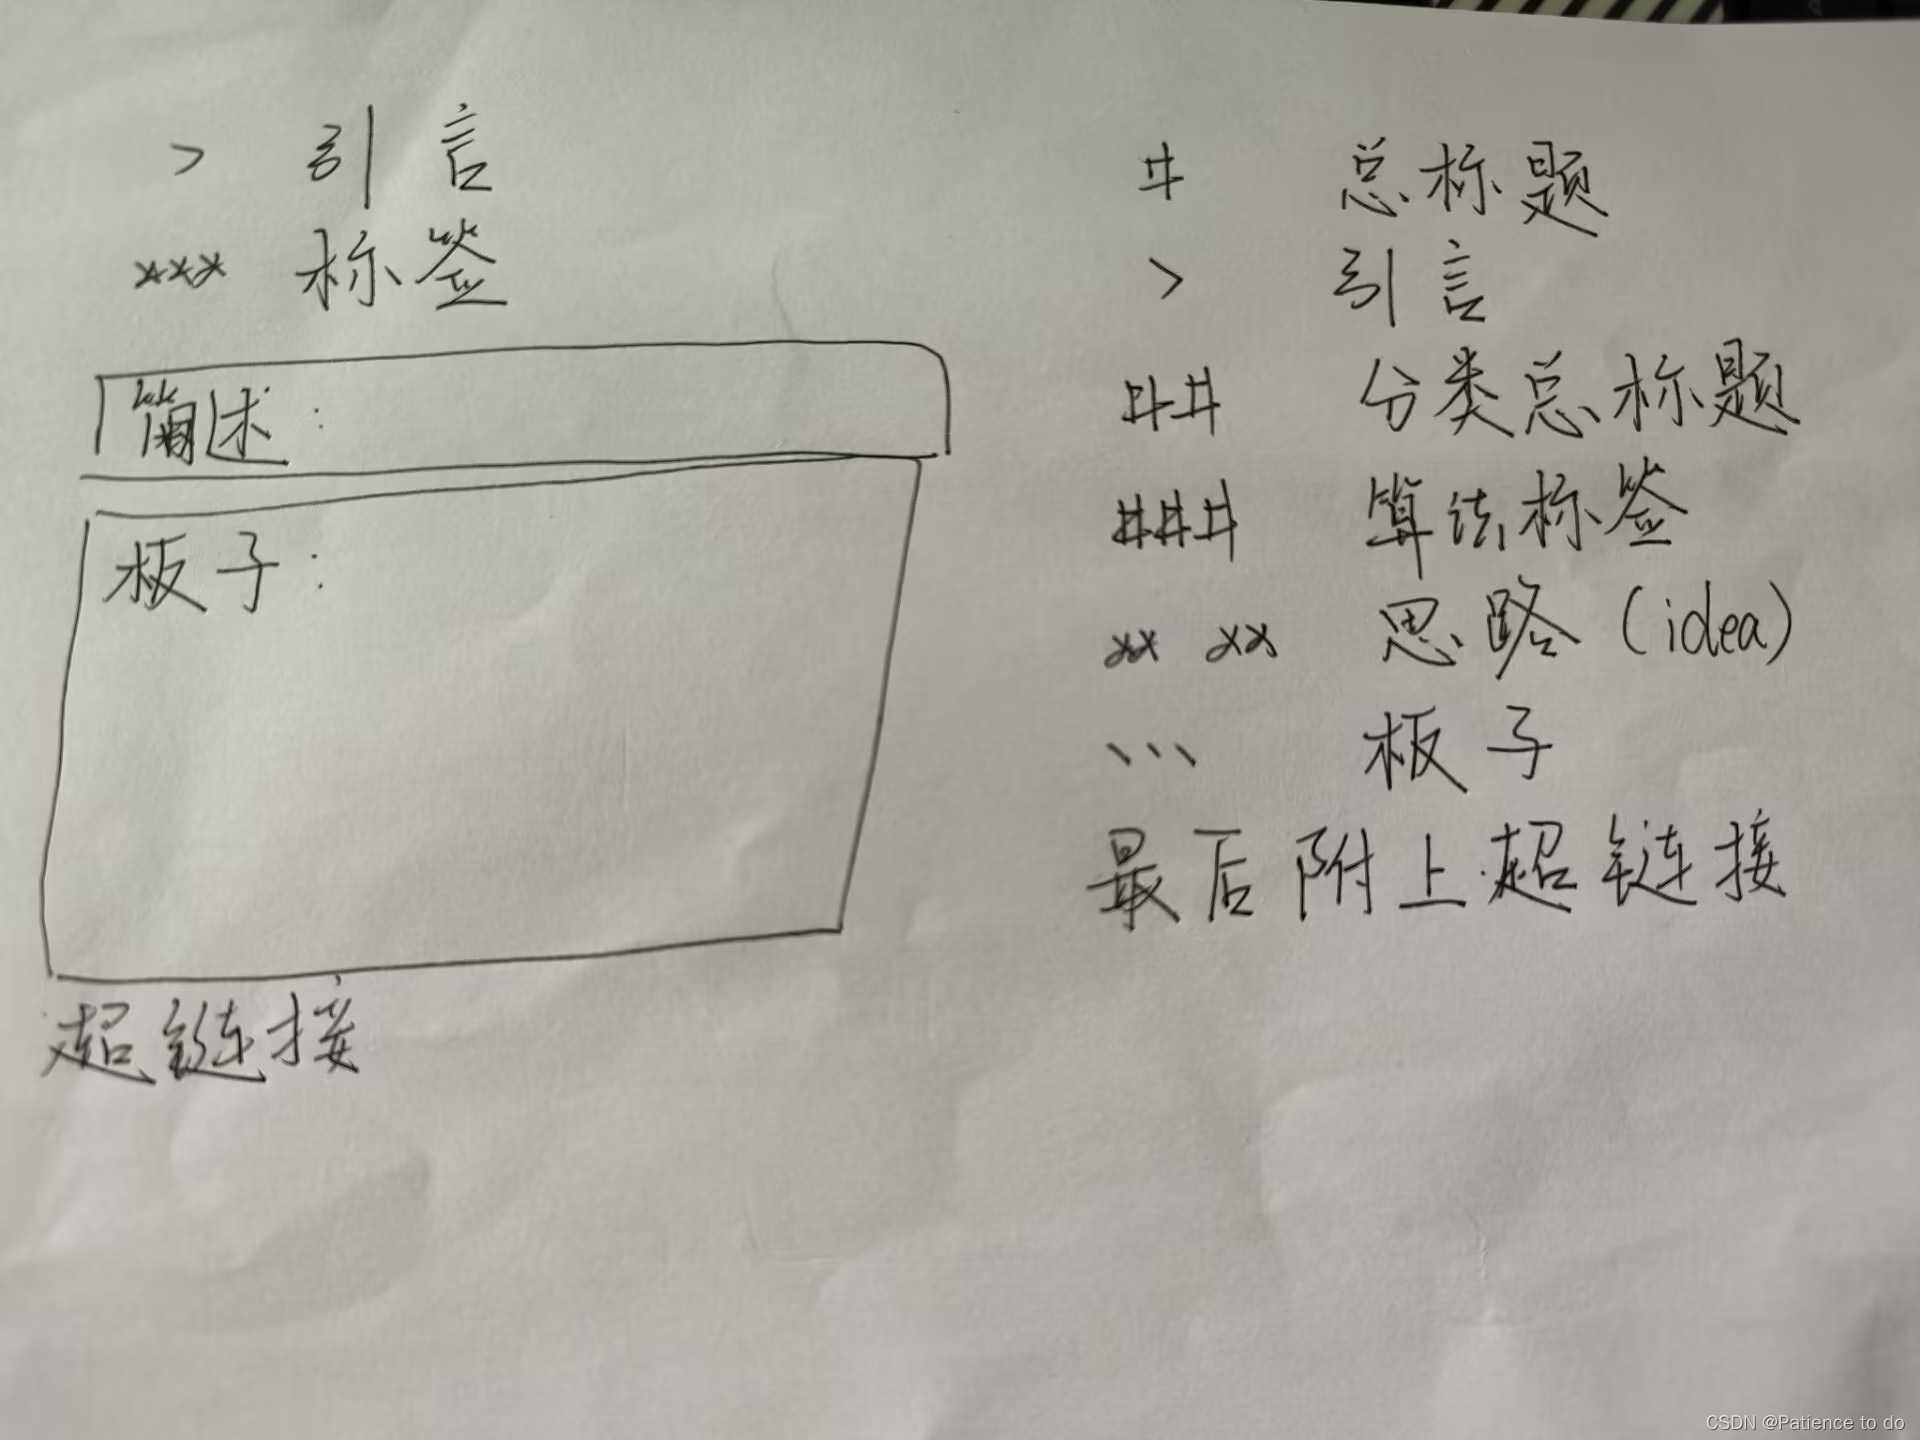 > 引言
*** 标签
简述:
板子:
超链接
# 总标题
> 引言
## 分类总标题
### 算法标签
** ** 思路(idea)
``` 板子
最后附上超链接
CSDN @Patience to do